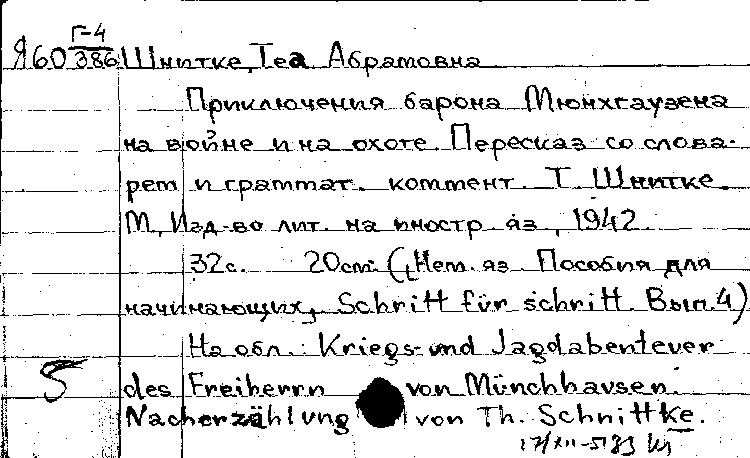 Г-4
Я60 386 Шнитке, Теа Абрамовна
Приключения барона Мюнхгаузена
на войне и на охоте. Пересказ со слова-
рем и граммат. коммент. Т. Шнитке.
М., Изд-во лит. на иностр. яз., 1942.
32 с. 20 cm. (Нем. яз. Пособия для
начинающих, Schritt für schritt. Вып. 4)
На обл.: Kriegs- und Jagdabenteuer
5 des Freiherrn von Münchhausen.
Nacherzählung von Th. Schnittke.